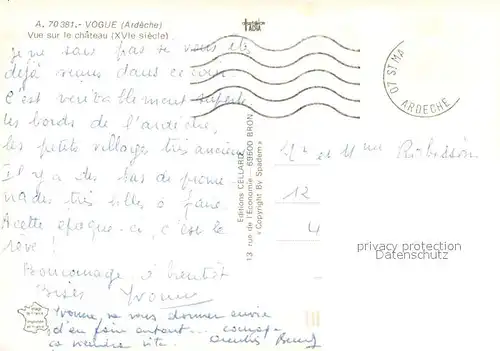 A. 70381.- VOGUE (Ardèche)
Vue sur le château (XVIe siècle)
Je ne sais pas si vous êtes
déjà venus dans ce coin
C'est veritablement superbe
les bords de l'ardèche,
les petits villages très anciens
Il y a des tas de prome
nades très belles à faire.
A cette époque-ci, c'est le
rêve !
Bon à bientôt
Bises Yvonne
Yvonne va vous donner envie
d'en faire autant...
ça viendra vite.
Editions CELLARD
13 rue de l'Economie 69500 BRON
« Copyright By Spadem »
07 ST MA
ARDECHE
Mr et Mme
12
4
privacy protection
watermark